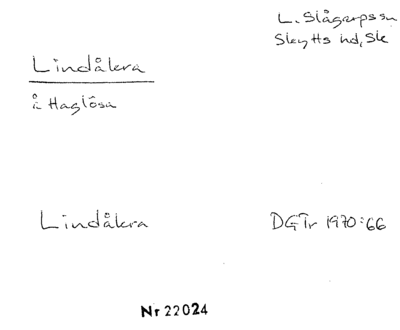 L. Slågarps sn
Skytts hd, Sk
Lindåkra
å Haglösa
Lindåkra
DGTr 1970:66
Nr 22024